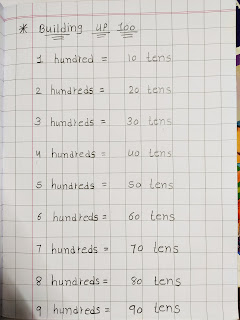 * Building up 100
1 hundred = 10 tens
2 hundreds = 20 tens
3 hundreds = 30 tens
4 hundreds = 40 tens
5 hundreds = 50 tens
6 hundreds = 60 tens
7 hundreds = 70 tens
8 hundreds = 80 tens
9 hundreds = 90 tens